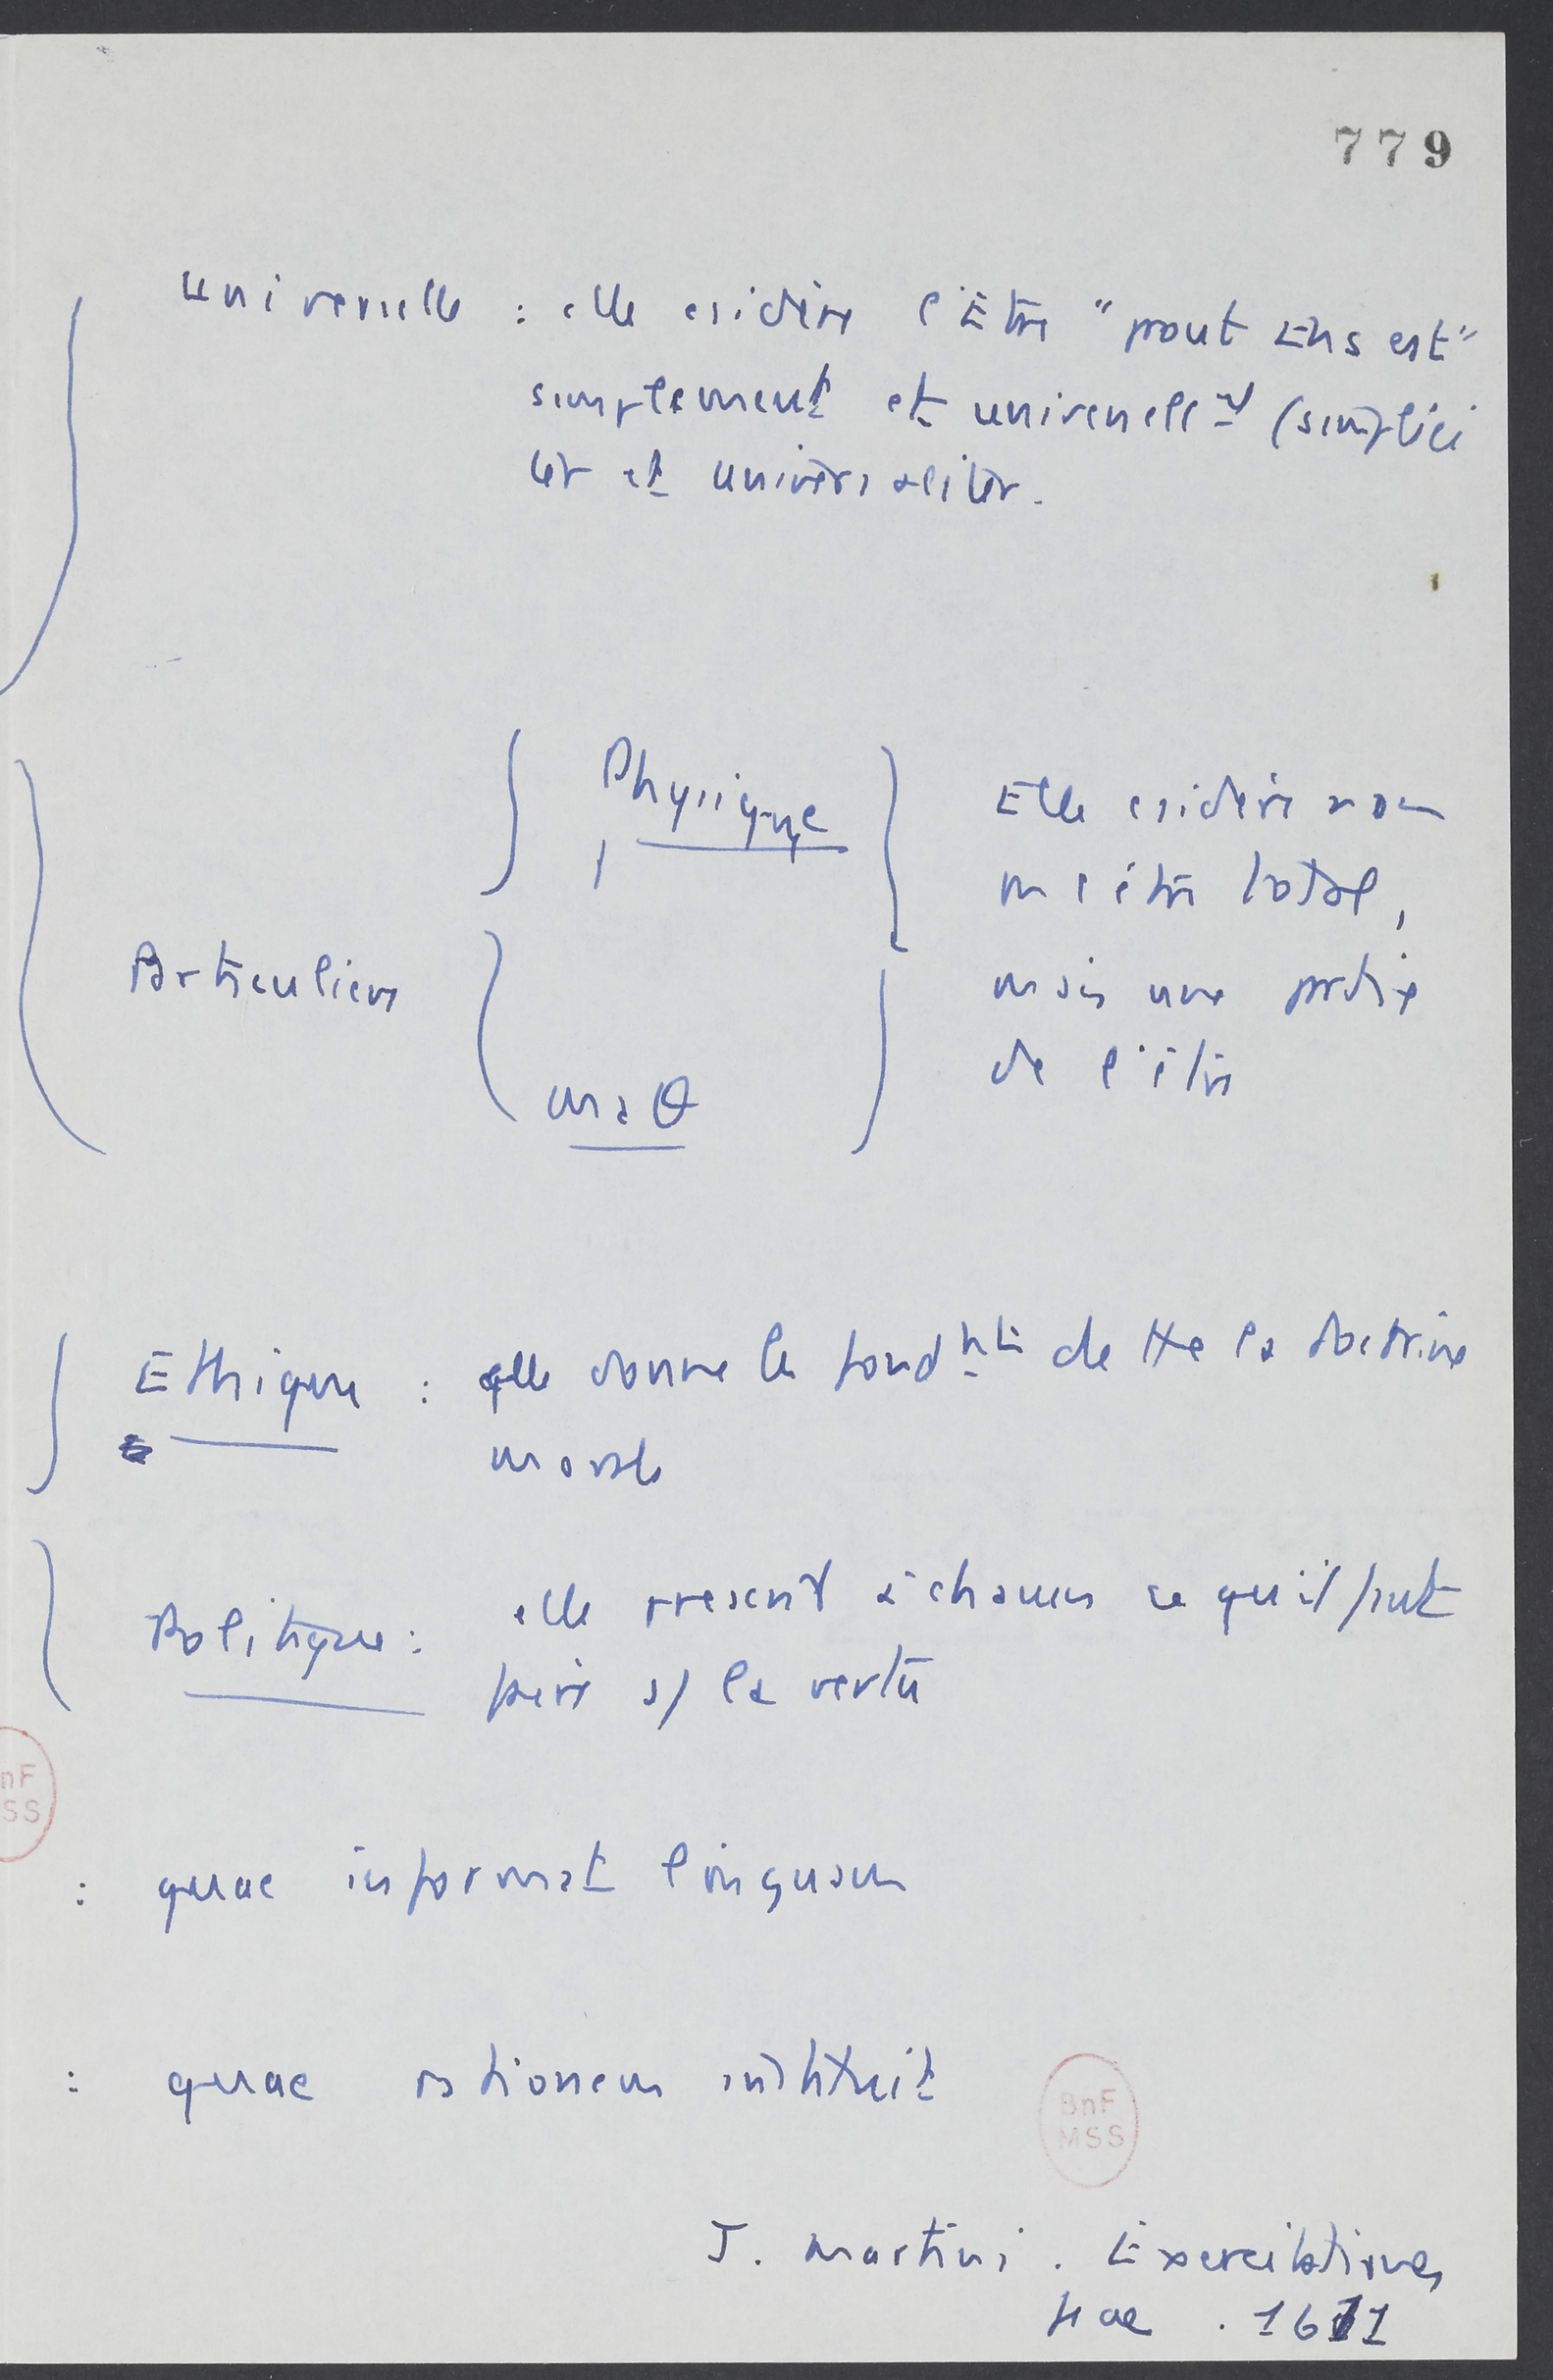 779
universelle : elle csidère l'Être "prout Ens est"
simplement et universellᵗ (simplici
ter et universaliter.
Physique
Elle csidère non
m l'être total,
Particulière
mais une partie
de l'être
maθ
Ethique : elle donne les fondᵗˢ de tte la doctrine
morale
Politique : elle prescrit à chacun ce qu'il faut
faire s/ la vertu
nF
SS
: quae informat linguam
: quae rationem instituit
BnF
MSS
J. Martini. Exercitationes
φae . 1611